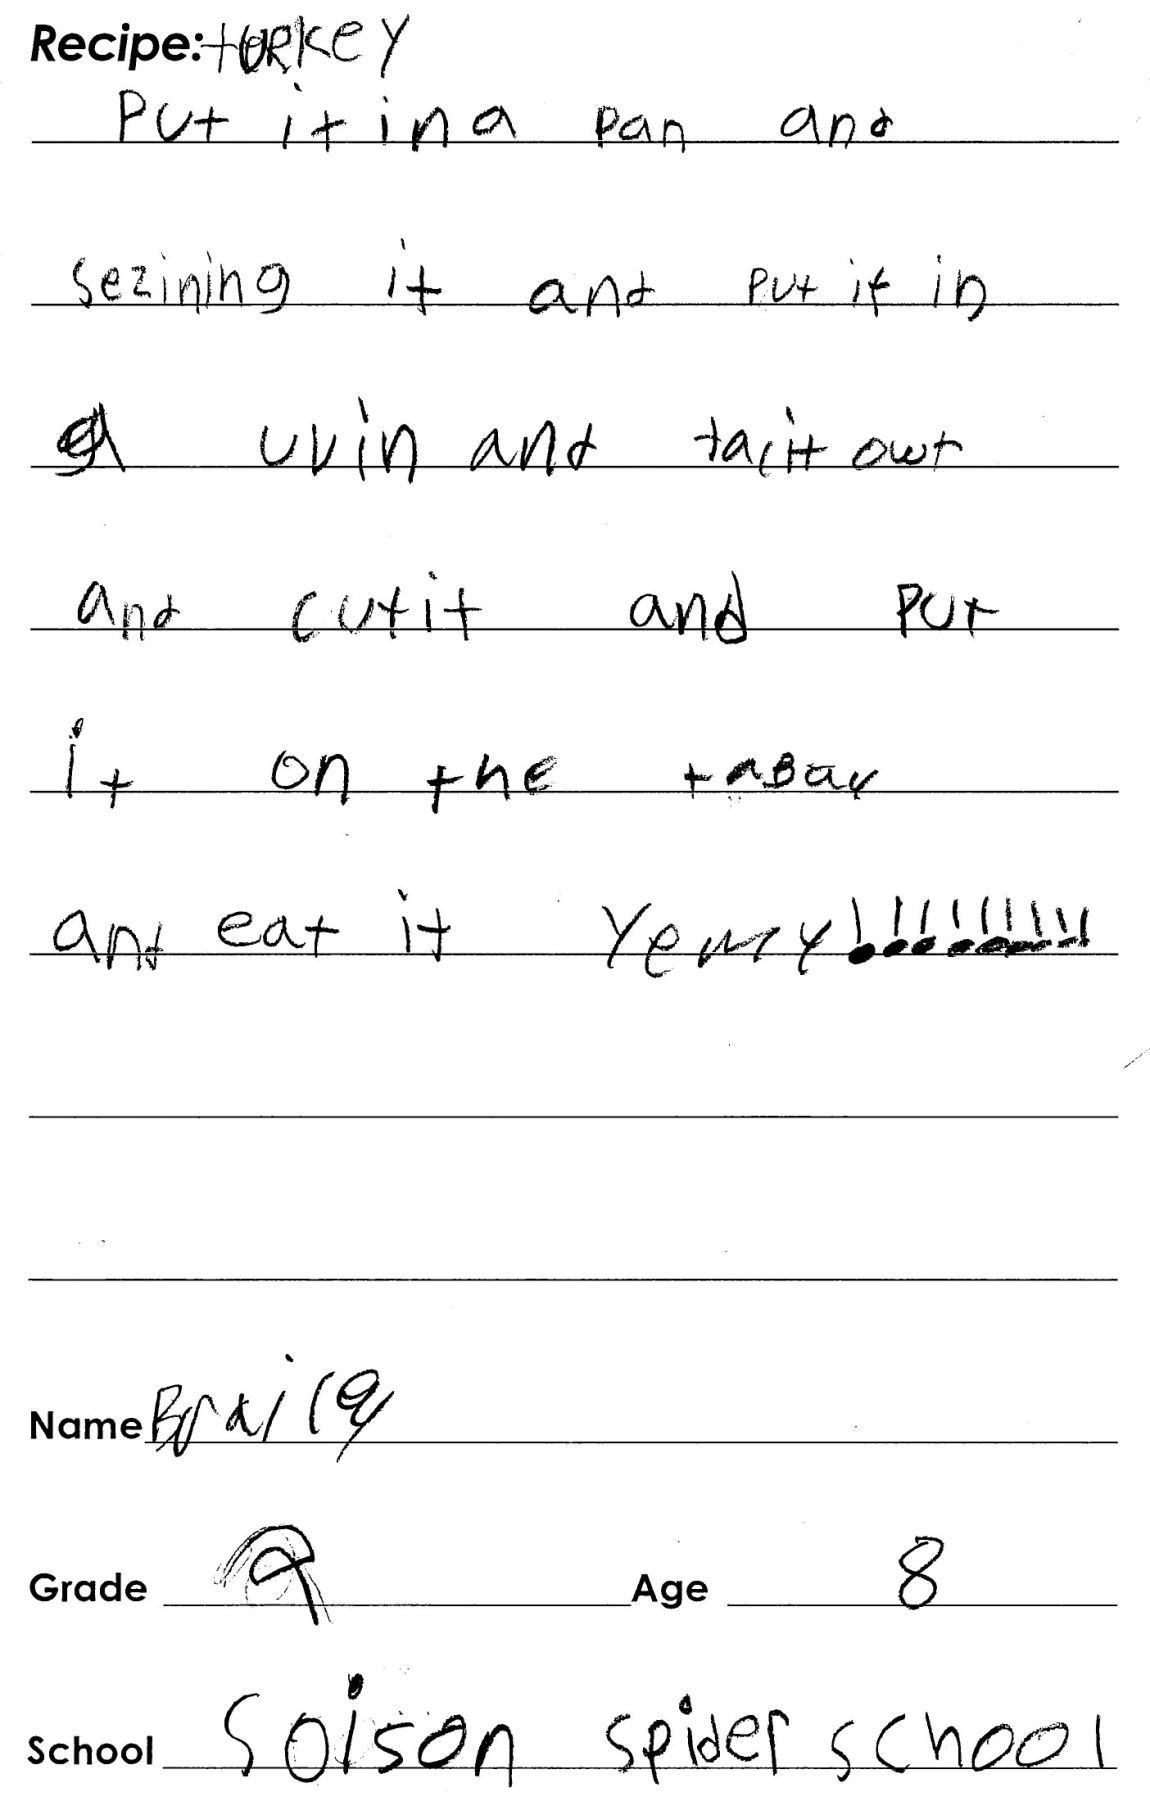 Recipe: turkey
Put it in a pan and
sezining it and put it in
a uvin and tacit owt
and cutit and put
it on the tabay
and eat it Yemmy!!!!!!!!!
Name
Grade Age 8
School Soison spider school